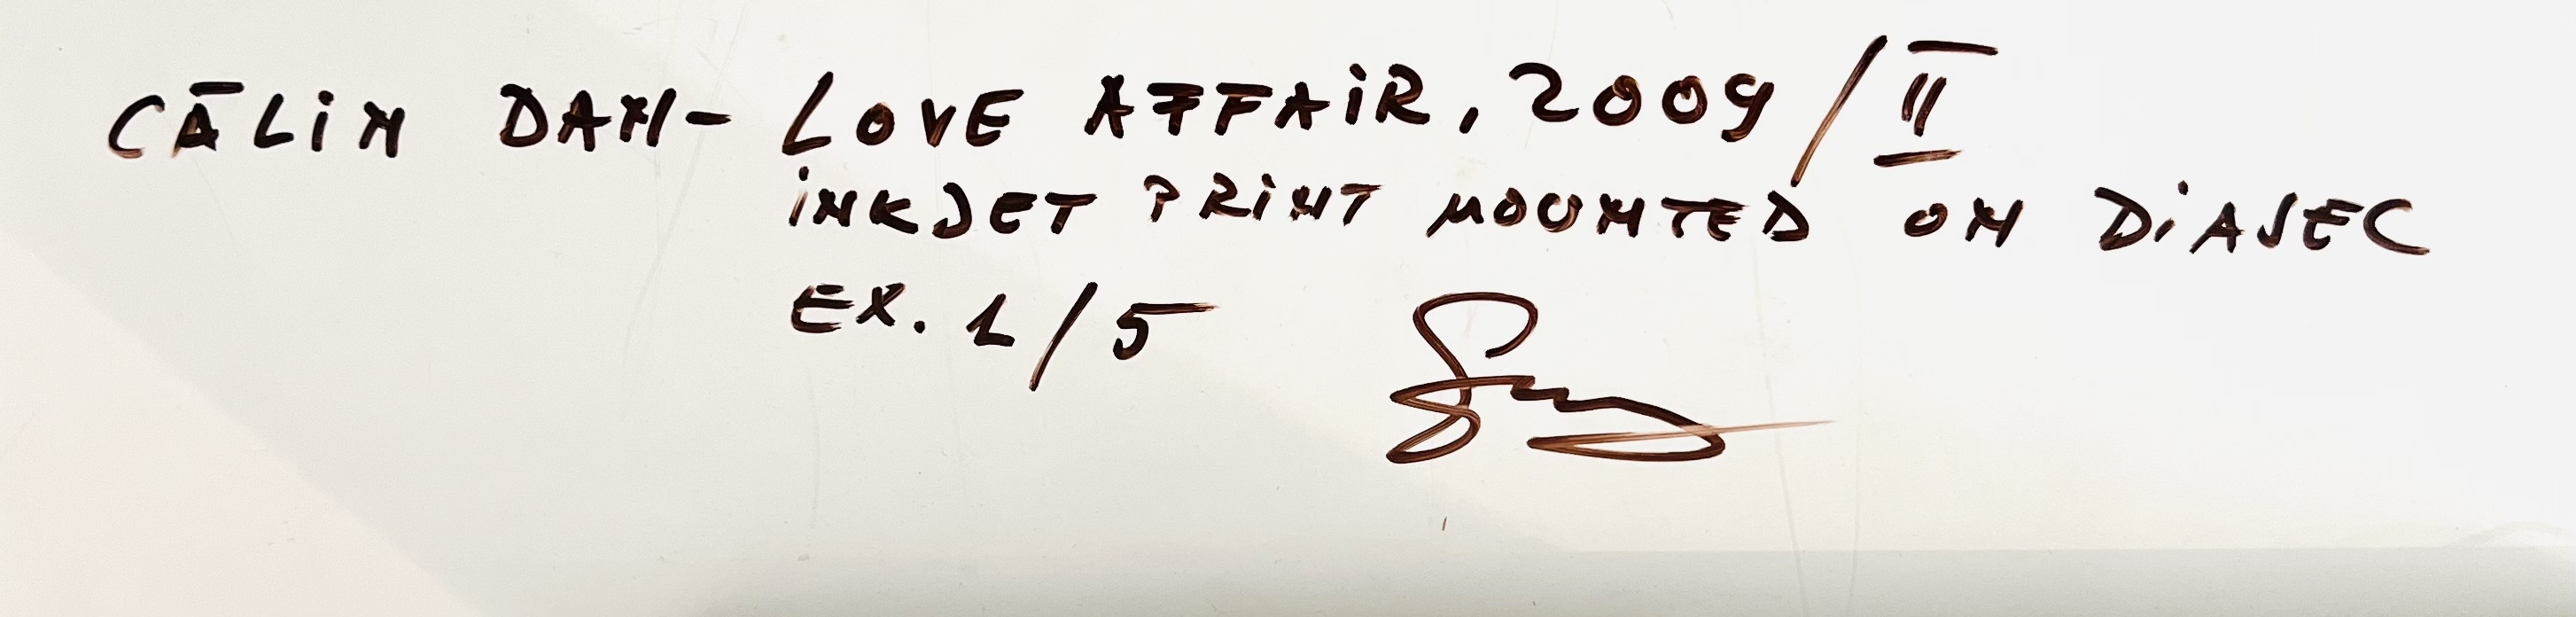 CĂLIN DAN - LOVE AFFAIR, 2009/II
INKJET PRINT MOUNTED ON DIASEC
EX. 1/5